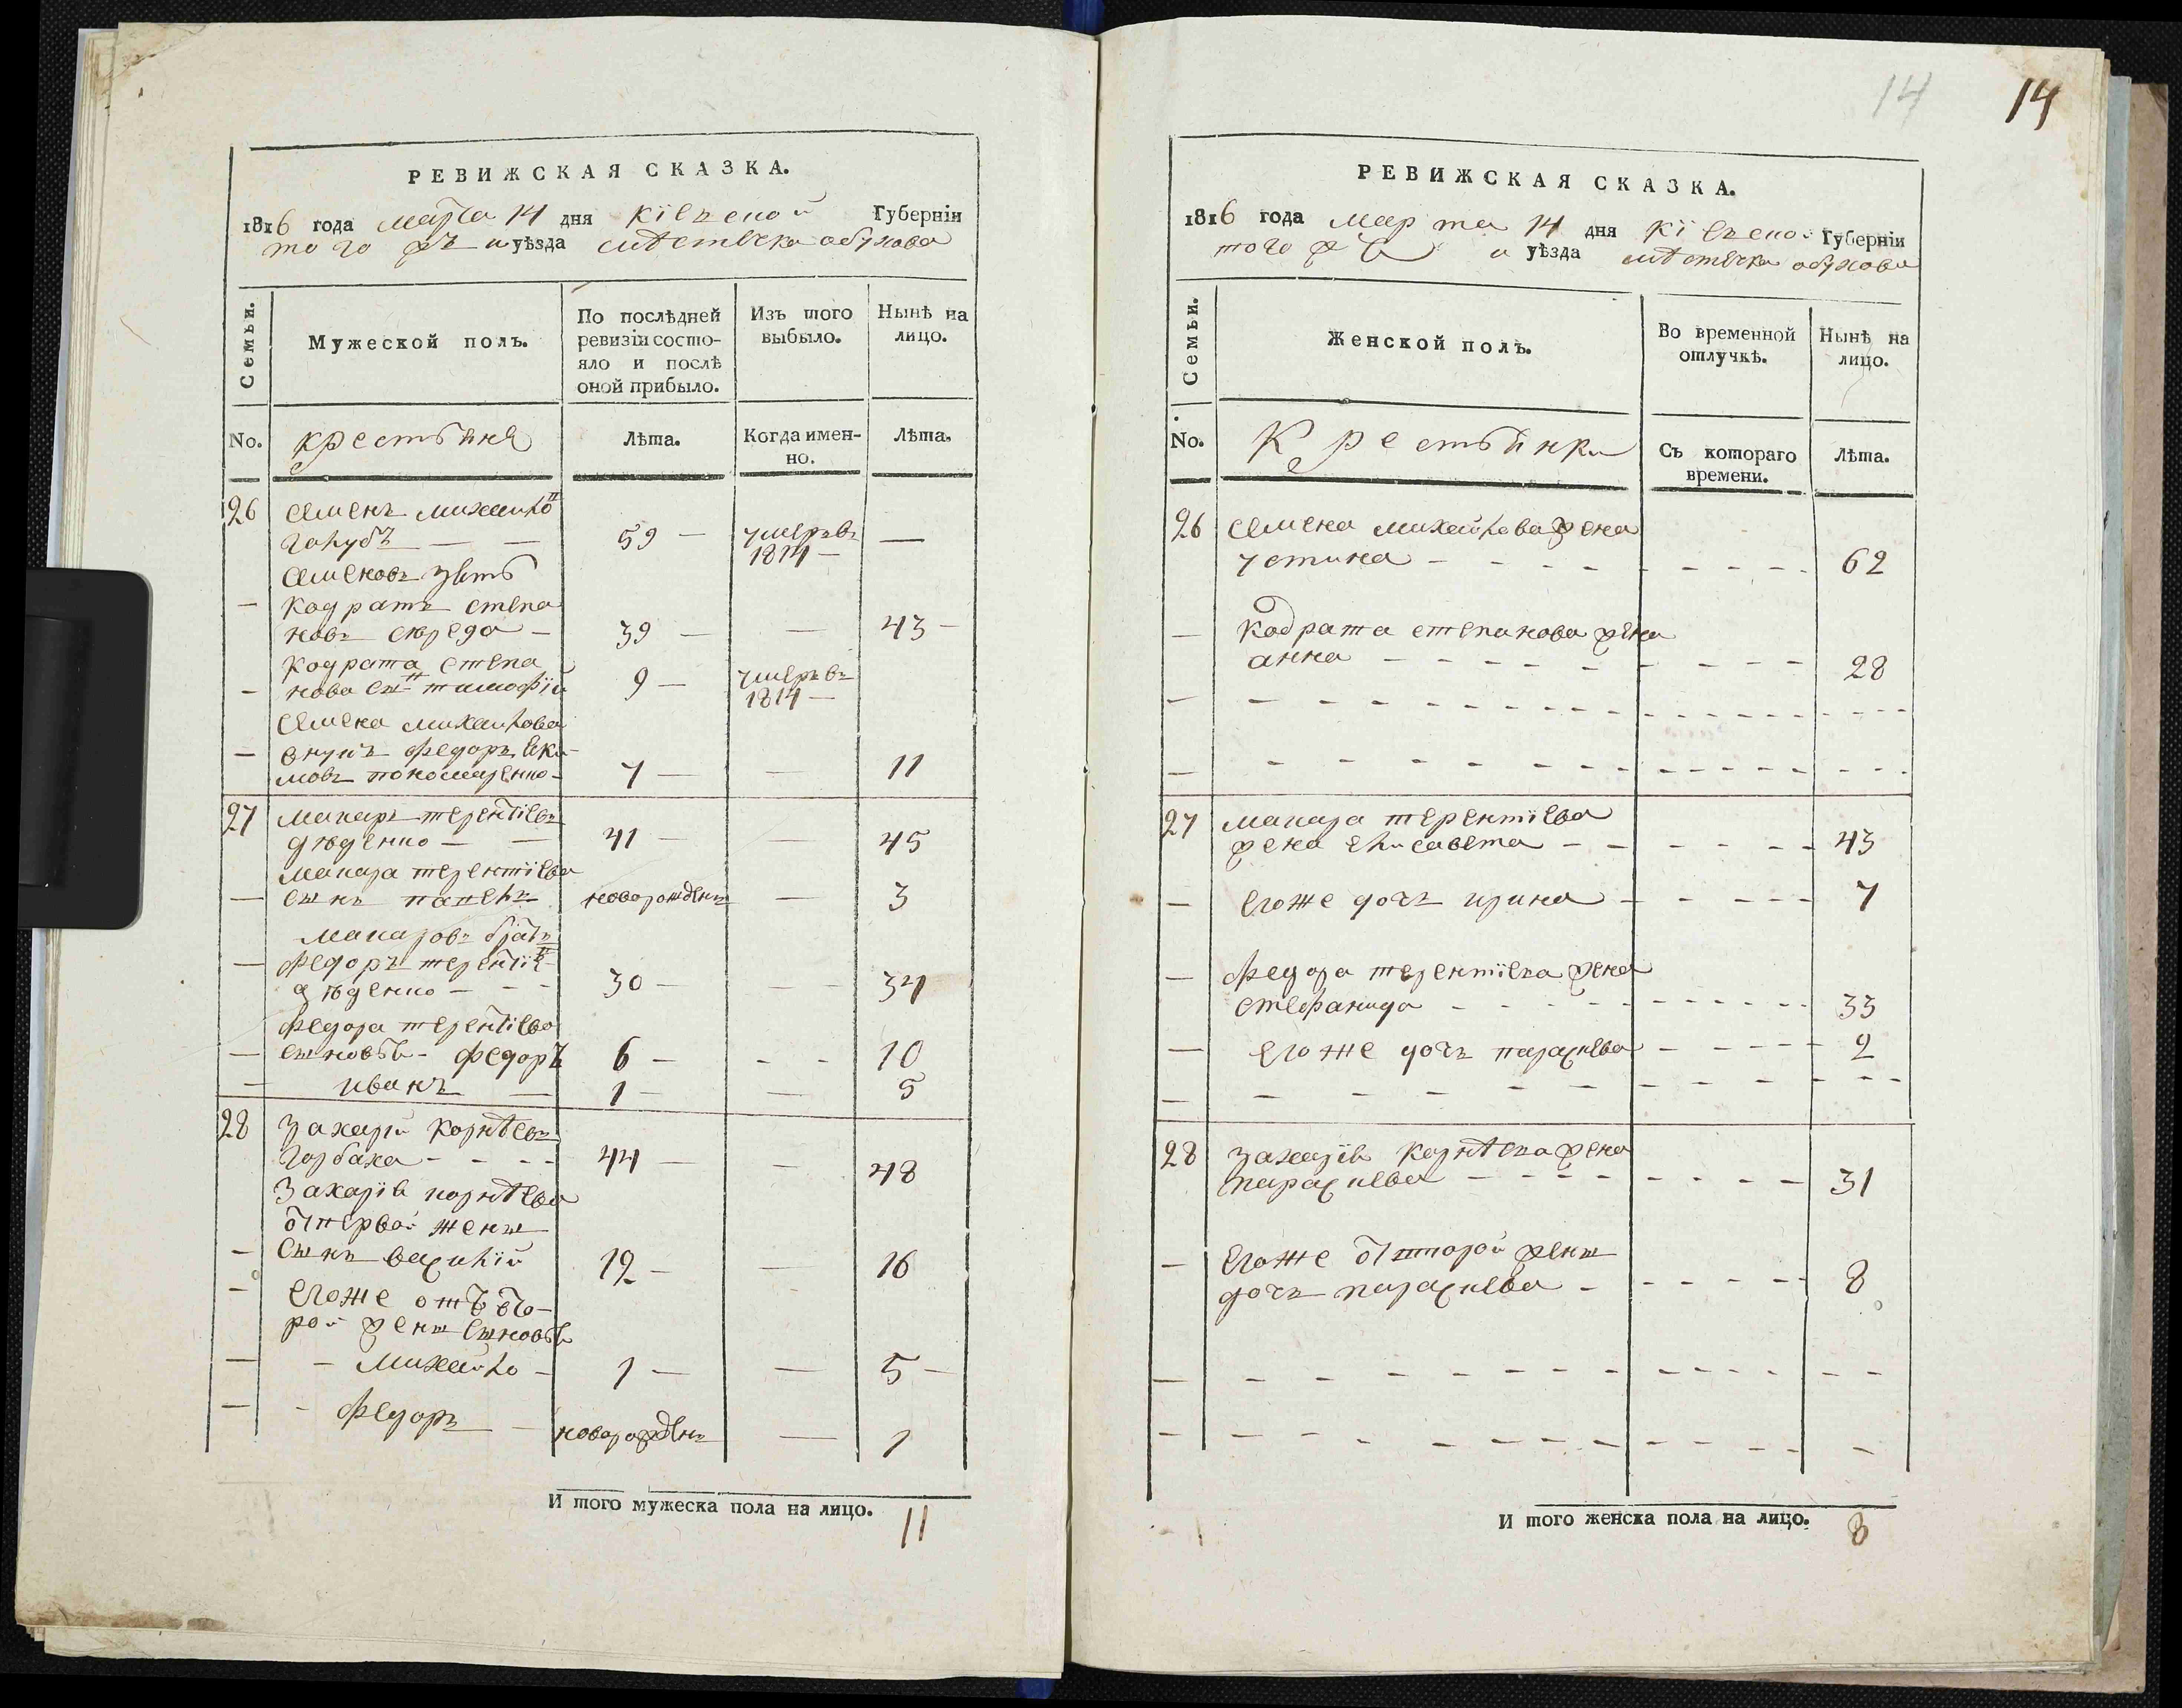 РЕВИЖСКАЯ СКАЗКА.
1816 года марта 14 дня Кіевской Губерніи
того жъ и уѣзда мѣстечка обухова
Семьи.
Мужеской полъ.
По послѣдней ревизіи состо-
яло и послѣ
оной прибыло.
Изъ того
выбыло.
Нынѣ на
лицо.
No.
крестьяне
Лѣта.
Когда имен-
но.
Лѣта.
26 Семенъ михайло
голубъ — — 59 — умеръ въ 1814 — —
Семеновъ зять
— Кодратъ степа
новъ середа — 39 — — 43 —
Кодрата степа
— нова сынъ тимофѣй 9 — умеръ въ 1814 —
Семена михайлова
— внукъ федоръ яки-
мовъ пономаренко — 7 — — 11
27 макаръ терентіевъ
дѣденко — — 41 — — 45
макара терентіева
— сынъ павелъ новорожденъ — 3
макаровъ братъ
— федоръ терентіе
дѣденко — — — 30 — — 34
федора терентіева
— сыновья — федоръ 6 — - - 10
— иванъ — 1 — — 5
28 Захарій корнѣевъ
горбаха - - - - 44 — — 48
Захарія корнѣева
отпервой жены
— сынъ василій 12 — — 16
— егоже отъ вто-
рой жены сыновья
— - михайло - 1 — — 5 —
— - федоръ — новорожденъ — 1
И того мужеска пола на лицо. 11
14 14
РЕВИЖСКАЯ СКАЗКА.
1816 года марта 14 дня Кіевской Губерніи
того ж и уѣзда мѣстечка обухова
Семьи.
Женской полъ.
Во временной
отлучкѣ.
Нынѣ на
лицо.
No.
Крестьянки
Съ котораго
времени.
Лѣта.
26 Семена михайлова жена
устина - - - - - - - - 62
— Кодрата степанова жена
анна - - - - - - - - - 28
27 макара терентіева
жена елисавета - - - - - - 43
— егоже дочь ирина - - - - - 7
— федора терентіева жена
стефанида - - - - - - - - 33
— егоже дочь параскева - - - - - 2
28 захарія корнѣева жена
параскева - - - - - - - - 31
— егоже отвторой жены
дочь параскева - - - - - - 8
И того женска пола на лицо. 8